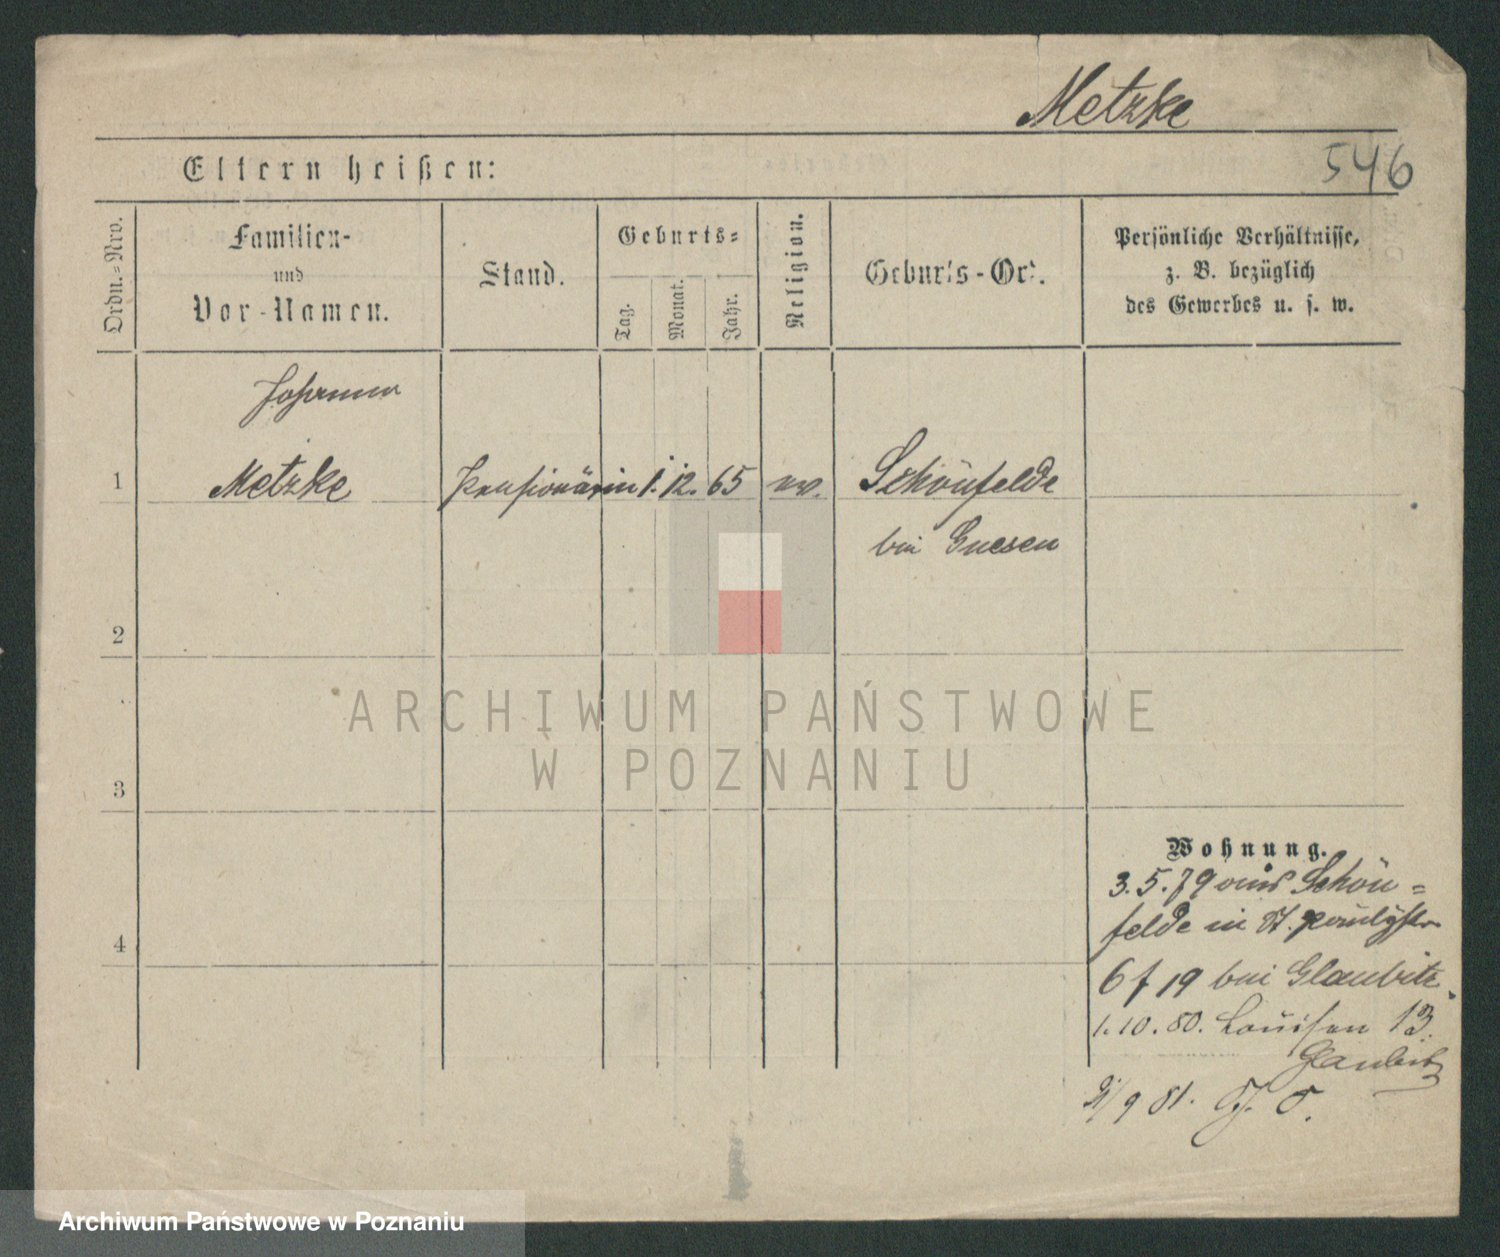 Metzke
546
Eltern heißen:
Ordn.=Nro.
Familien-
und
Vor-Namen.
Stand.
Geburts=
Tag.
Monat.
Jahr.
Religion.
Geburts-Ort.
Persönliche Verhältnisse,
z. B. bezüglich
des Gewerbes u. s. w.
Johanna
1 Metzke Pensionärin 1. 12. 65 ev. Schönfelde
bei Gnesen
2
3
4
Wohnung.
3.5.79 aus Schön=
felde in St.
6 f 19 bei Glaubitz
1.10.80. Louisen 13.
Glaubitz
9 81.
ARCHIWUM PAŃSTWOWE
W POZNANIU
Archiwum Państwowe w Poznaniu